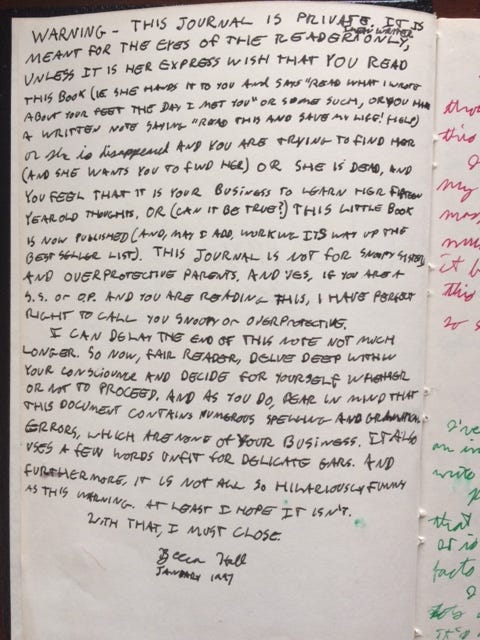 WARNING - THIS JOURNAL IS PRIVATE. IT IS
MEANT FOR THE EYES OF THE READER (THEN WRITER) ONLY,
UNLESS IT IS HER EXPRESS WISH THAT YOU READ
THIS BOOK (IE SHE HANDS IT TO YOU AND SAYS "READ WHAT I WROTE
ABOUT YOUR FEET THE DAY I MET YOU" OR SOME SUCH, OR YOU HAVE
A WRITTEN NOTE SAYING "READ THIS AND SAVE MY LIFE! HELP)
OR she is disappeared AND YOU ARE TRYING TO FIND HER
(AND SHE WANTS YOU TO FIND HER) OR SHE IS DEAD, AND
YOU FEEL THAT IT IS YOUR BUSINESS TO LEARN HER FIFTEEN
YEAR OLD THOUGHTS, OR (CAN IT BE TRUE?) THIS LITTLE BOOK
IS NOW PUBLISHED (AND, MAY I ADD, WORKING ITS WAY UP THE
BEST SELLER LIST). THIS JOURNAL IS NOT FOR SNOOPY SISTERS
AND OVERPROTECTIVE PARENTS, AND YES, IF YOU ARE A
S.S. OR O.P. AND YOU ARE READING THIS, I HAVE PERFECT
RIGHT TO CALL YOU SNOOPY OR OVERPROTECTIVE.
I CAN DELAY THE END OF THIS NOTE NOT MUCH
LONGER. SO NOW, FAIR READER, DELVE DEEP WITHIN
YOUR CONSCIOUNCE AND DECIDE FOR YOURSELF WHETHER
OR NOT TO PROCEED. AND AS YOU DO, BEAR IN MIND THAT
THIS DOCUMENT CONTAINS NUMEROUS SPELLING AND GRAMATICAL
ERRORS, WHICH ARE NONE OF YOUR BUSINESS. IT ALSO
USES A FEW WORDS UNFIT FOR DELICATE EARS. AND
FURTHERMORE, IT IS NOT ALL SO HILARIOUSLY FUNNY
AS THIS WARNING. AT LEAST I HOPE IT ISN'T.
WITH THAT, I MUST CLOSE.
Becca Hall
JANUARY 1997
this
I
my
It b
this
so s
I've
an in
write
that
et is
facts
I